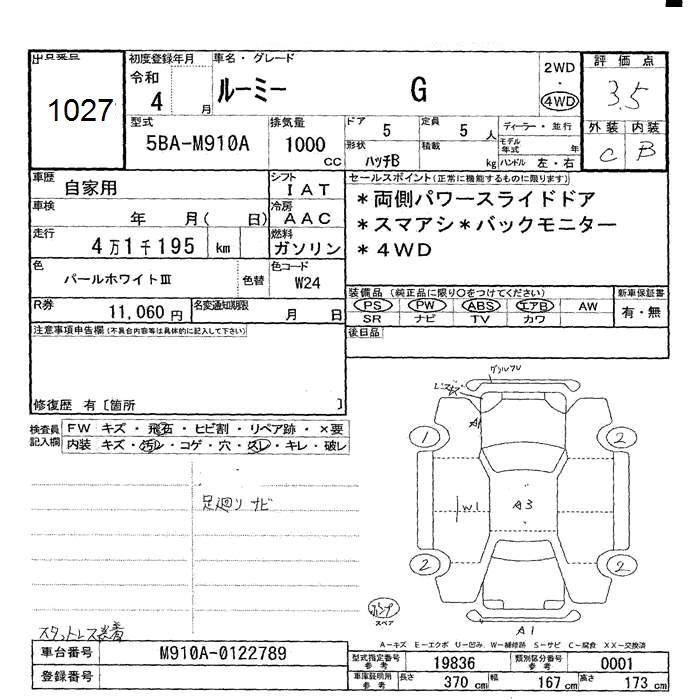 出品番号
1027
初度登録年月
令和
4 月
車名・グレード
ルーミー G
2WD
・
4WD
評価点
3.5
外装 内装
C B
型式
5BA-M910A
排気量
1000
CC
ドア 5
定員 5 人
形状
ハッチB
積載 kg
ディーラー・並行
モデル年式 年
ハンドル 左・右
車歴 自家用
シフト
IAT
車検 年 月( 日)
冷房
AAC
走行 4万1千195 km
燃料
ガソリン
色
パールホワイトⅢ
色替
色コード
W24
R券 11,060 円
名変通知期限 月 日
セールスポイント(正常に機能するものに限ります)
*両側パワースライドドア
*スマアシ*バックモニター
*4WD
装備品(純正品に限り○をつけてください)
PS PW ABS エアB AW
SR ナビ TV カワ
新車保証書
有・無
注意事項申告欄(不具合内容等は具体的に記入して下さい)
後日品
修復歴 有〔箇所 〕
検査員
記入欄
FW キズ・飛石・ヒビ割・リペア跡・×要
内装 キズ・汚レ・コゲ・穴・スレ・キレ・破レ
足廻りサビ
A1
1
2
W1
A3
2
2
A1
スペア
スタットレス装着
A-キズ E-エクボ U-凹み W-補修跡 S-サビ C-腐食 XX-交換済
車台番号 M910A-0122789
登録番号
型式指定番号
参考
19836
類別区分番号
参考
0001
車庫証明用
参考
長さ 370 cm
幅 167 cm
高さ 173 cm